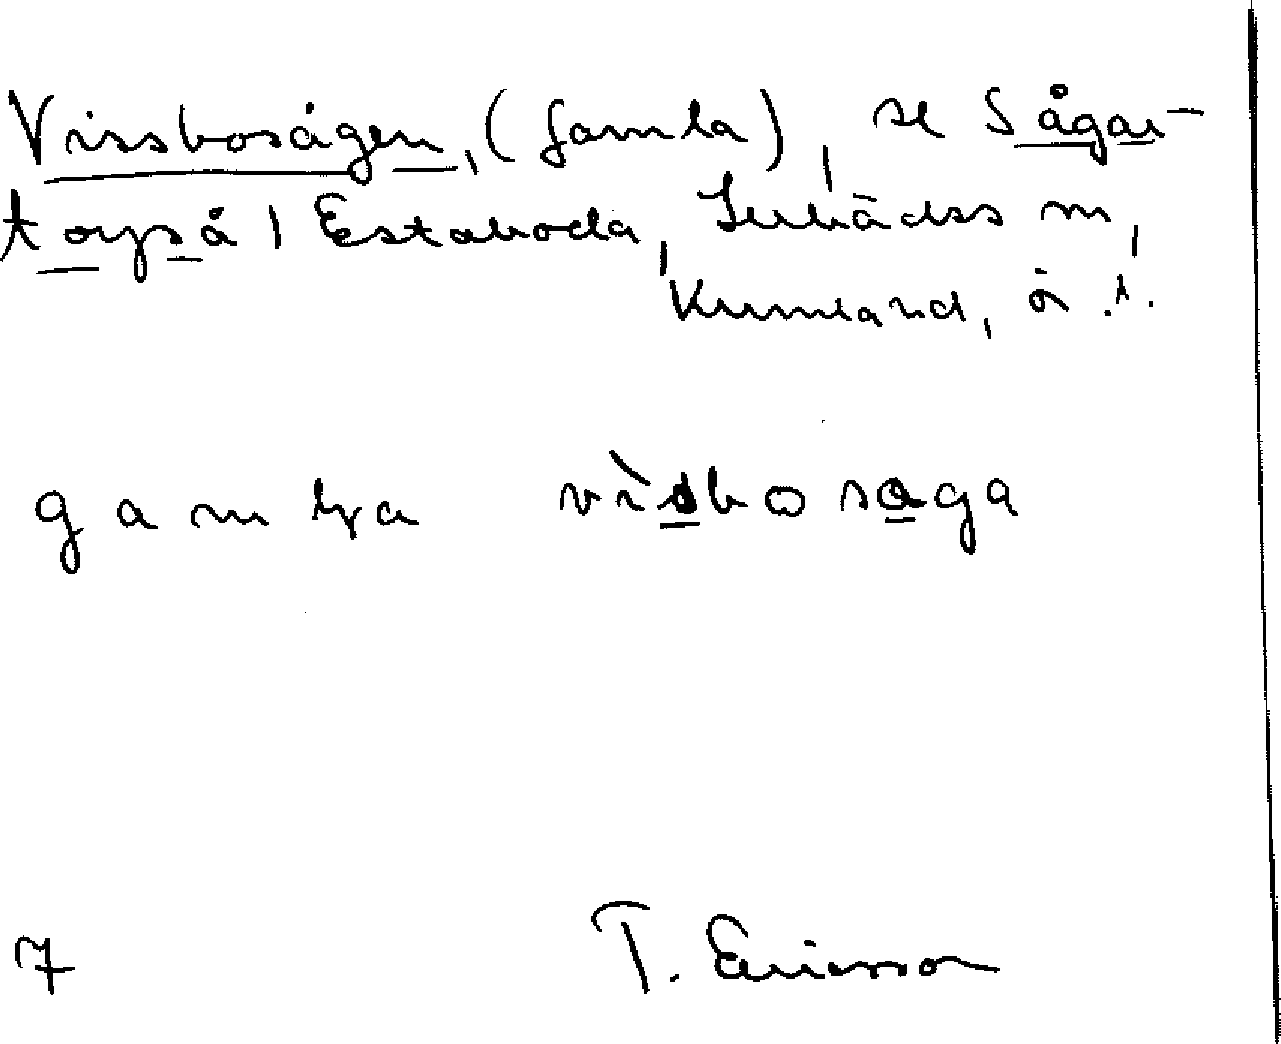 Vissbosågen, (Gamla), se Sågar-
torpså, Estaboda, Lerbäcks sn,
Kumla hd, ö.l.
gamla visbosaga
7 T. Ericsson